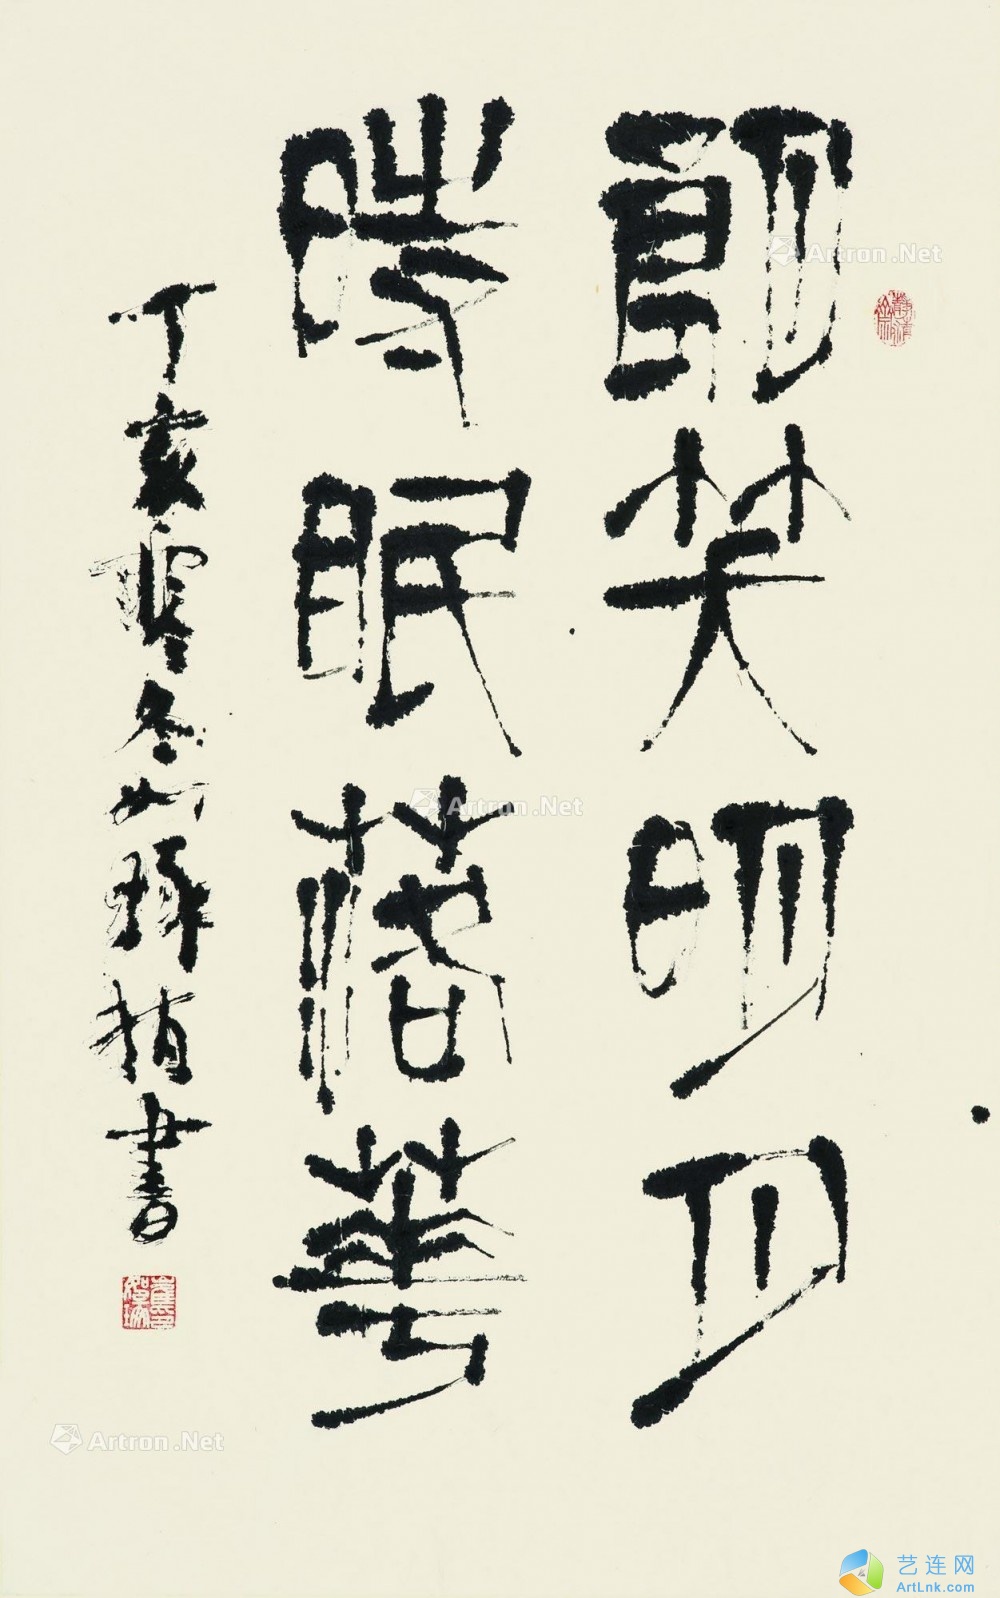 朗笑明月
時眠落華
丁亥冬書
Artron.Net
Artron.Net
Artron.Net
艺连网
ArtLnk.com